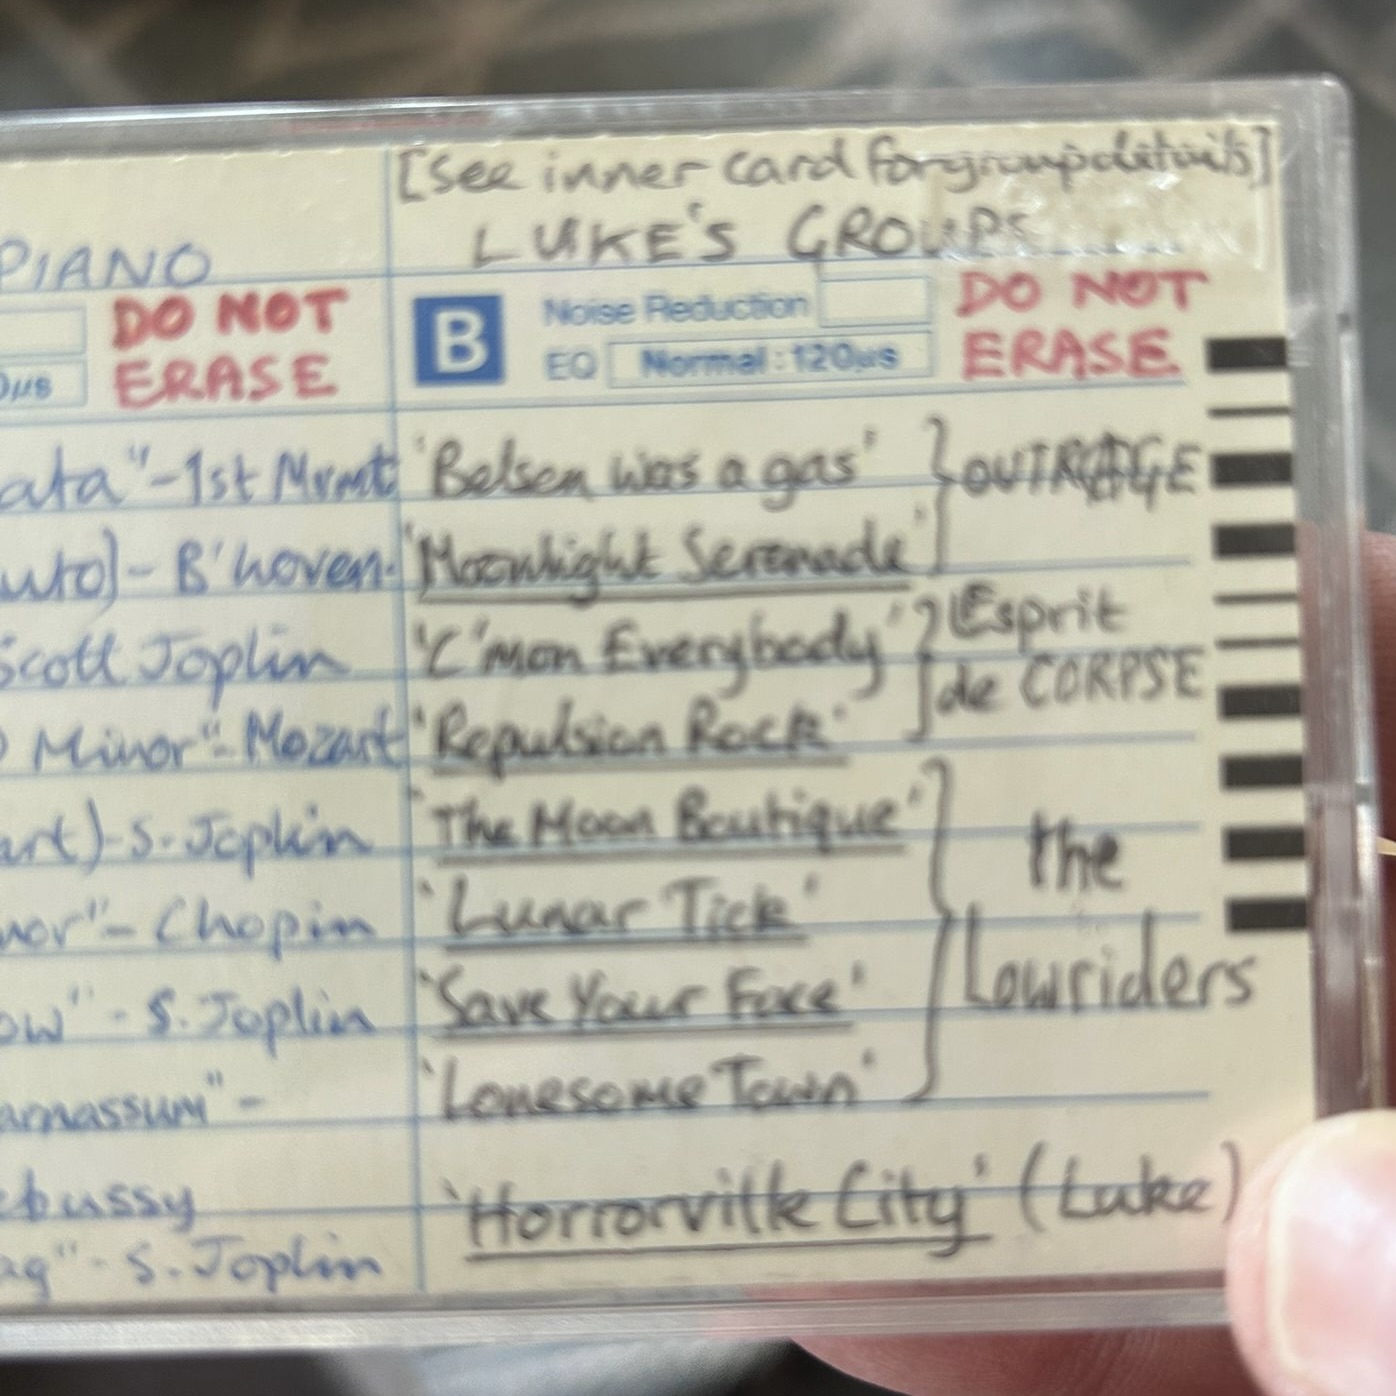 [See inner card for group details]
LUKE'S GROUPS
PIANO
DO NOT
ERASE
B
Noise Reduction
EQ Normal:120µs
DO NOT
ERASE
0µs
ata" - 1st Mvmt
uto) - B'hoven.
Scott Joplin
D Minor" - Mozart
art) - S. Joplin
nor" - Chopin
ow" - S. Joplin
arnassum" -
ebussy
ag" - S. Joplin
'Belsen was a gas'
'Moonlight Serenade'
OUTRAGE
'C'mon Everybody'
'Repulsion Rock'
Esprit
de CORPSE
'The Moon Boutique'
'Lunar Tick'
'Save Your Face'
'Lonesome Town'
the
Lowriders
'Horrorville City' (Luke)